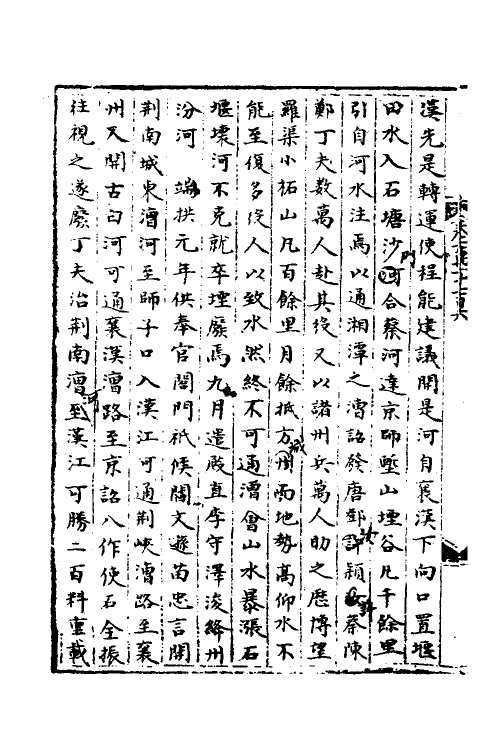 漢先是轉運使程能建議開是河自襄漢下向口置堰
回水入石塘沙河合蔡河達京師塹山堙谷凡千餘里
引自河水注焉以通湘潭之漕詔發唐鄧汝潁許蔡陳
鄭丁夫數萬人赴其役又以諸州兵萬人助之歷博望
羅渠小祏山凡百餘里月餘抵方城而地勢高仰水不
能至復多役人以致水然終不可通漕會山水暴漲石
堰壞河不克就卒堙廢焉九月遣殿直李守澤浚絳州
汾河　端拱元年供奉官閤門祗候閻文遜苗忠言開
荆南城東漕河至師子口入漢江可通荆峽漕路至襄
州又開古白河可通襄漢漕路至京詔八作使石全振
往視之遂廢丁夫治荆南漕河至漢江可勝二百料重載